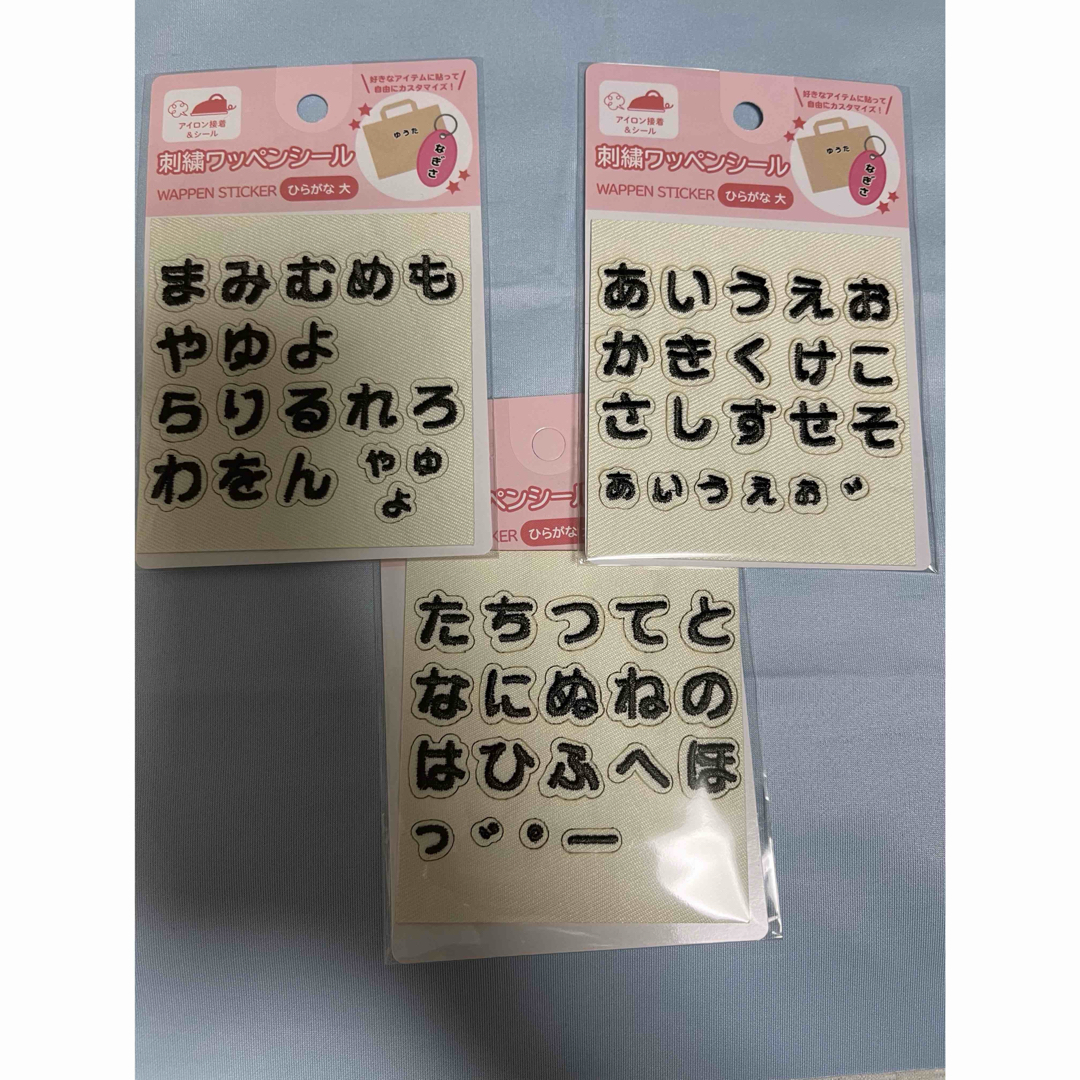 アイロン接着
&シール
好きなアイテムに貼って
自由にカスタマイズ!
ゆうた
なぎさ
刺繍ワッペンシール
WAPPEN STICKER ひらがな 大
まみむめも
やゆよ
らりるれろ
わをん ゃゅ
ょ
アイロン接着
&シール
好きなアイテムに貼って
自由にカスタマイズ!
ゆうた
なぎさ
刺繍ワッペンシール
WAPPEN STICKER ひらがな 大
あいうえお
かきくけこ
さしすせそ
ぁぃぅぇぉ゛
ペンシール
KER ひらがな
たちつてと
なにぬねの
はひふへほ
っ゛゜ー